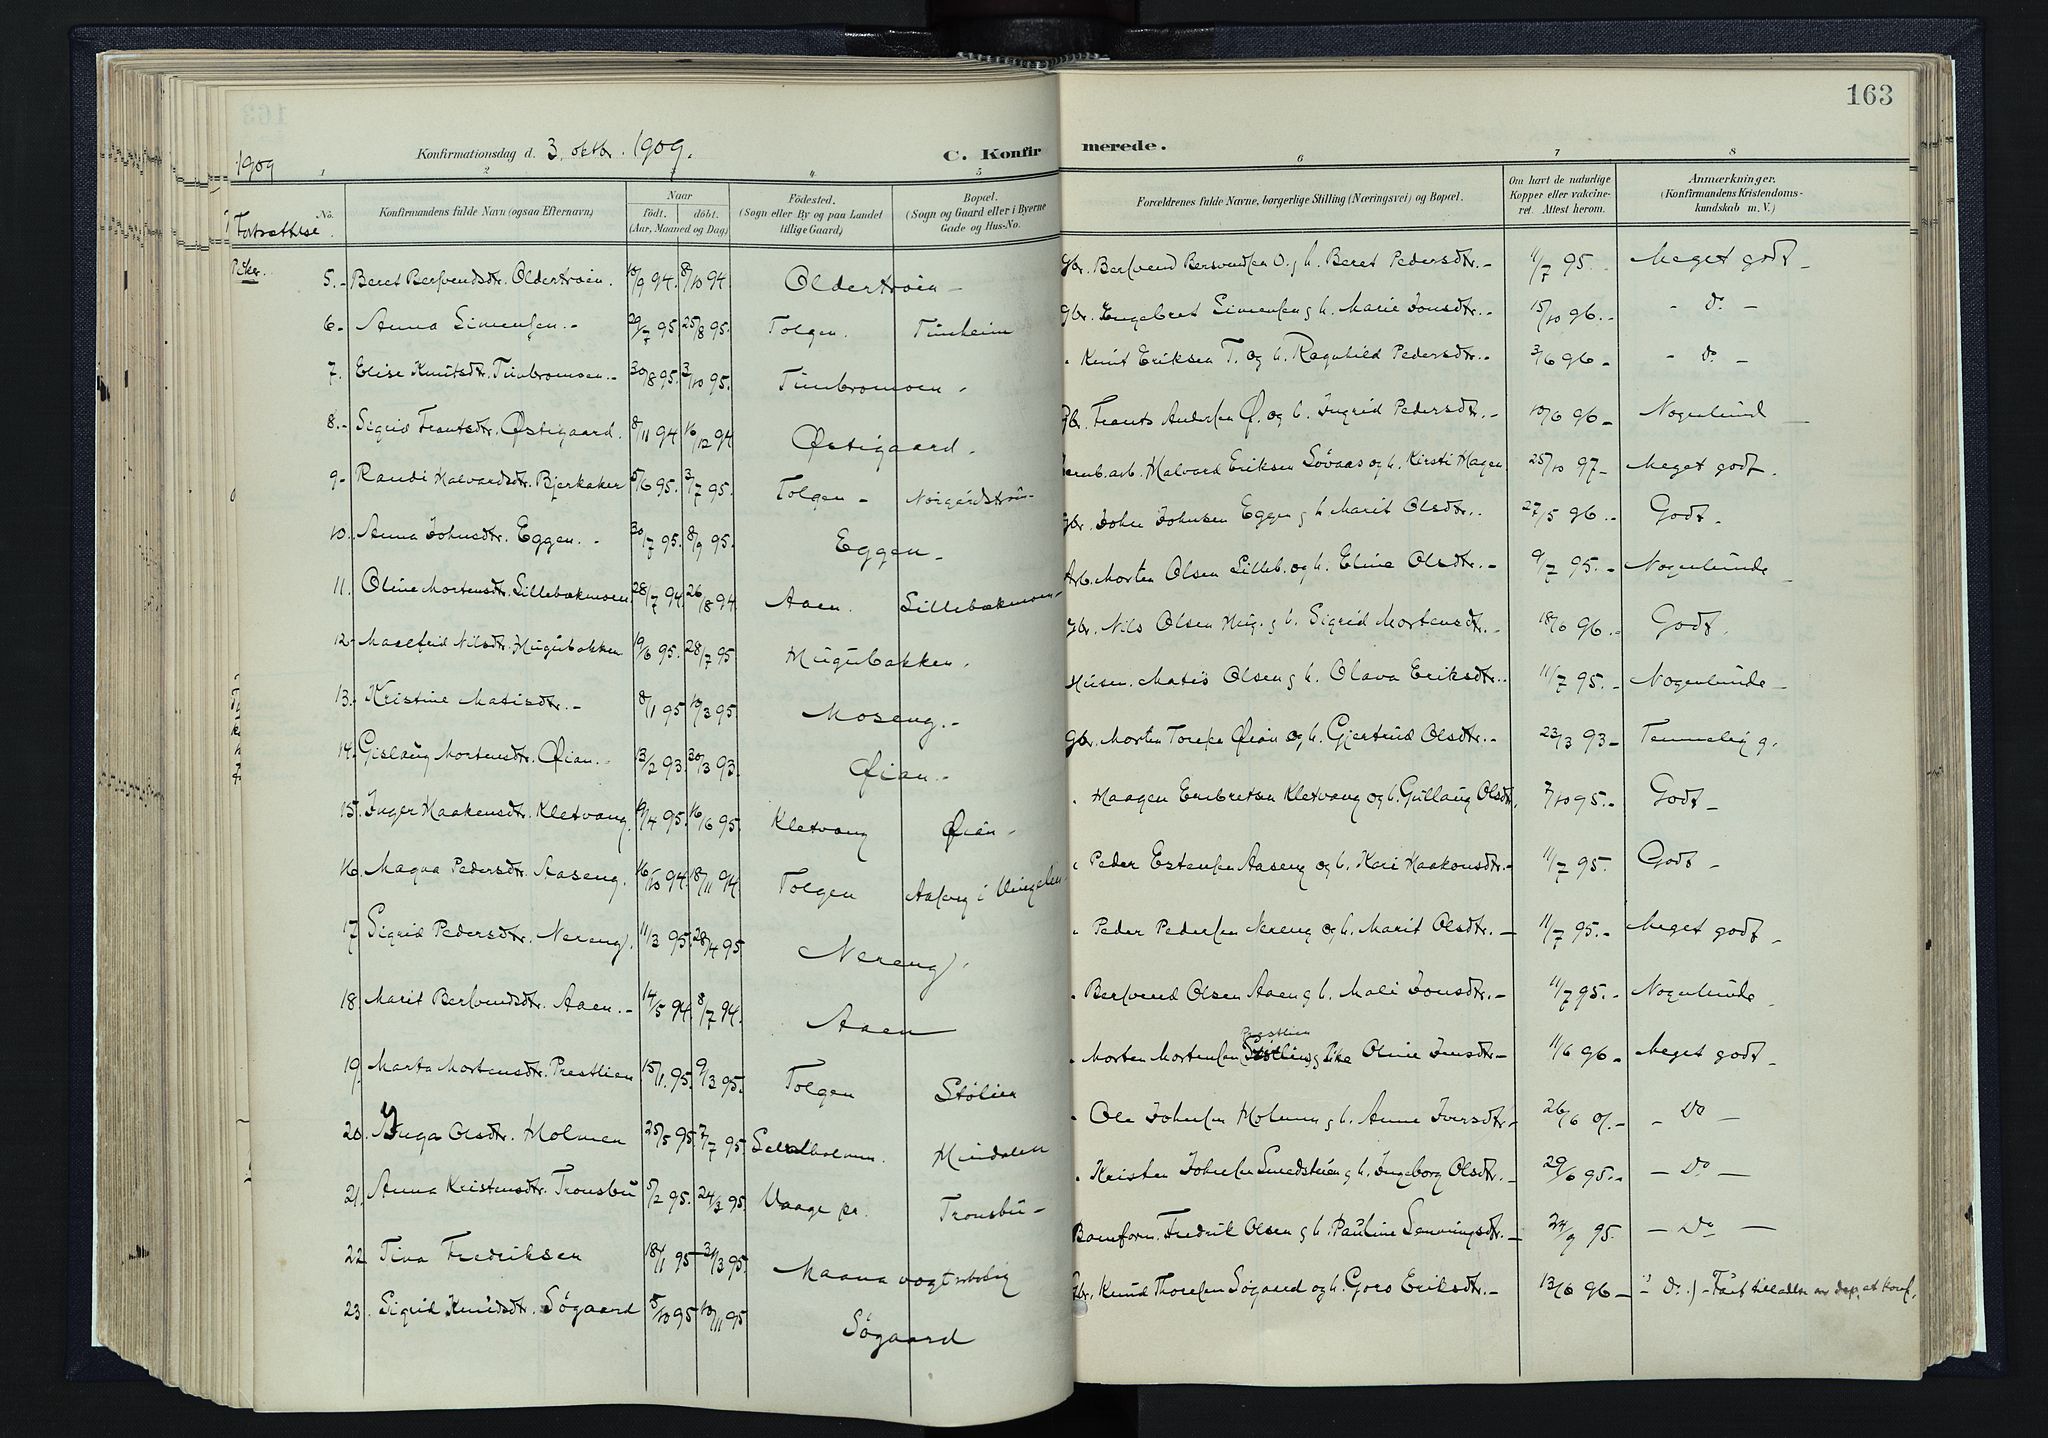 163
1909
Konfirmationsdag d. 3. oktbr. 1909.
C. Konfirmerede.
1 2 3 4 5 6 7 8
No. Konfirmandens fulde Navn (ogsaa Efternavn) Naar født. døbt. (Aar, Maaned og Dag) Födested. (Sogn eller By og paa Landet tillige Gaard) Bopæl. (Sogn og Gaard eller i Byerne Gade og Hus-No. Forældrenes fulde Navne, borgerlige Stilling (Næringsvei) og Bopæl. Om havt de naturlige Kopper eller vakcineret. Attest herom. Anmærkninger. (Konfirmandens Kristendomskundskab m. V.)
Fortsættelse.
Piker.
5. Beret Bersvendsdtr. Oldertrøen. 10/9 94. 8/10 94 Oldertrøen Gbr. Bersvend Bersvendsen O. og h. Beret Pedersdtr. 11/7 95. Meget godt
6. Anna Simensen. 29/7 95. 25/8 95. Tolgen. Timheim Gbr. Engebret Simensen og h. Marie Jonsdtr. 15/10 96. Do
7. Elise Knutsdtr. Timbromoen. 30/8 95. 3/10 95. Timbromoen Knut Eriksen T. og h. Ragnhild Pedersdtr. 3/6 96 Do
8. Sigrid Frantsdtr. Østigaard. 8/11 94 16/12 94 Østigaard. Gbr. Frants Andersen Ø. og h. Ingrid Pedersdtr. 10/6 96 Nogenlund
9. Randi Halvardsdtr. Bjerkaker 5/6 95. 3/7 95. Tolgen Norgårdstrøn Jernb.arb. Halvard Eriksen Søvaas og h. Kirsti Hagen 25/10 97 Meget godt.
10. Anna Johnsdtr. Eggen. 30/7 95. 8/9 95. Eggen Gbr. John Johnsen Eggen og h. Marit Olsdtr. 27/5 96. Godt.
11. Oline Mortensdtr. Lillebækmoen 28/7 94. 26/8 94. Aaen. Lillebækmoen Arb. Morten Olsen Lilleb. og h. Eline Olsdtr. 9/7 95. Nogenlunde
12. Maselfrid Nilsdtr. Hugubakken 19/6 95. 28/7 95 Hugubakken. Gbr. Nils Olsen Hug. og h. Sigrid Mortensdtr. 18/6 96. Godt.
13. Kristine Matisdtr. 8/1 95 10/3 95. Moseng. Husm. Matis Olsen og h. Olava Eriksdtr. 11/7 95. Nogenlunde
14. Gislaug Mortensdtr. Øian. 13/2 93. 30/3 93. Øian. Gbr. Morten Toresen Øian og h. Gjertrud Olsdtr. 23/3 93 Temmelig g.
15. Inger Haakensdtr. Kletvang. 19/4 95. 16/6 95. Kletvang Øian Haagen Enbretsen Kletvang og h. Gullaug Olsdtr. 7/10 95. Godt
16. Magna Pedersdtr. Aaseng. 16/10 94. 18/11 94 Tolgen Aaseng i Vingelen Peder Estensen Aaseng og h. Kari Haakonsdtr. 11/7 95. Godt
17 Sigrid Pedersdtr. Nereng. 11/3 95. 28/4 95 Nereng. Peder Pedersen Nereng og h. Marit Olsdtr. 11/7 95. Meget godt
18. Marit Bersvendsdtr. Aaen. 14/5 94. 8/7 94. Aaen Bersvend Olsen Aaen og h. Mali Jonsdtr. 11/7 95. Nogenlunde
19. Marta Mortensdtr. Prestlien 15/1. 95. 9/3 95. Tolgen Stølien Morten Mortensen Prestlien og Pike Oline Jensdtr. 11/6 96. Meget godt
20. Inga Olsdtr. Holmen 25/5 95. 7/7 95. Hundalen Ole Johnsen Holmen og h. Anne Iversdtr. 26/6 01. Do
21. Anna Kristensdtr. Tronsbu 5/2 95. 24/3 95. Vaage pr. Tronsbu Kristen Johnsen Smedstuen og h. Ingeborg Olsdtr. 29/6 95. Do
22. Tina Fredriksen 18/1 95 31/3 95. Maana vogterbolig Baneform. Fredrik Olsen og h. Pauline Lenningsdtr. 24/9 95. Do
23. Sigrid Knudsdtr. Søgaard 8/10 95 10/11 95 Søgaard Gbr. Knud Thoresen Søgaard og h. Goro Eriksdtr. 13/6 96 Do.) Faat tilladelse av dep. at konf.